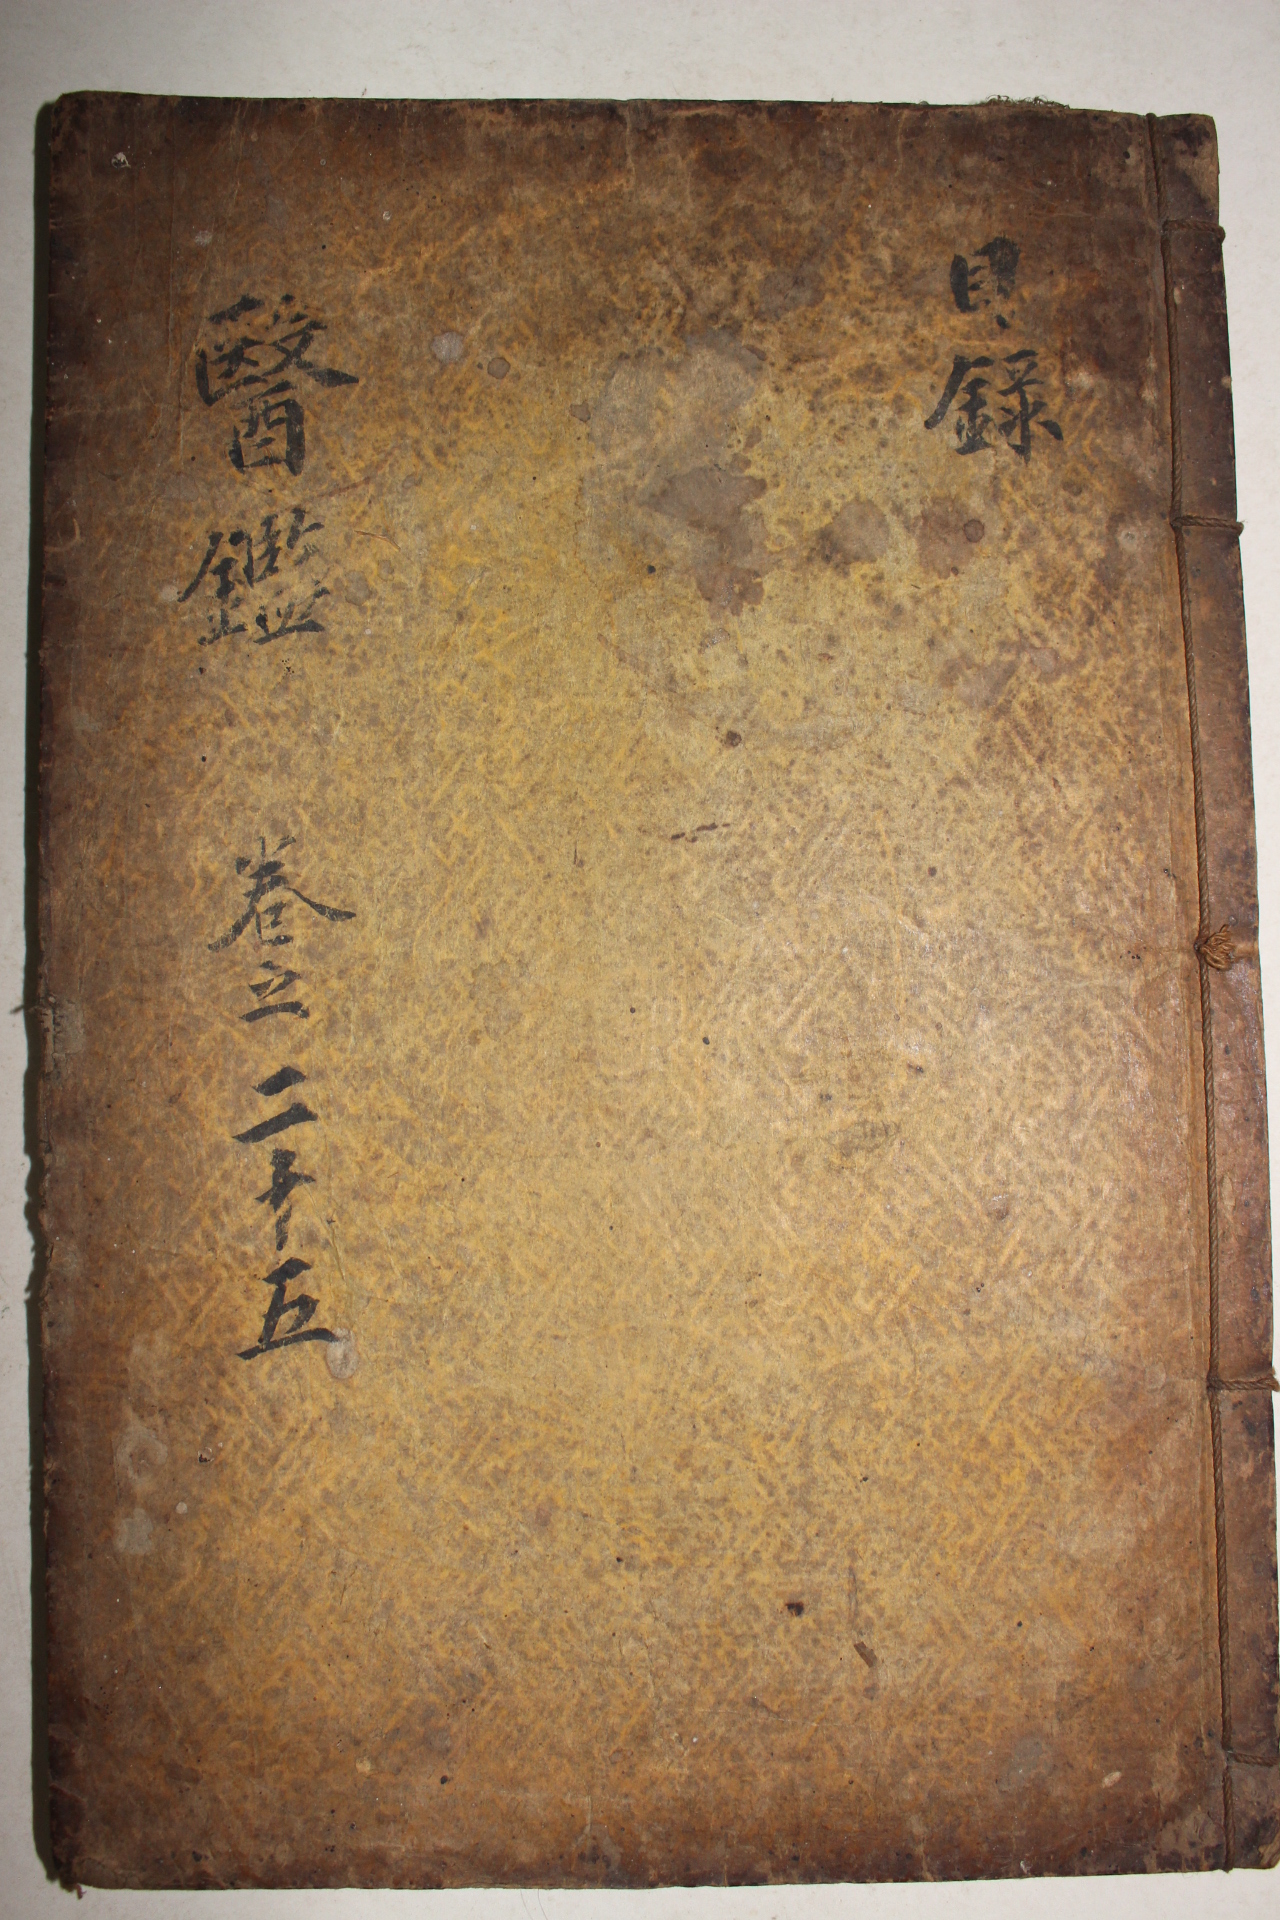 目錄
醫鑑 卷之二十五